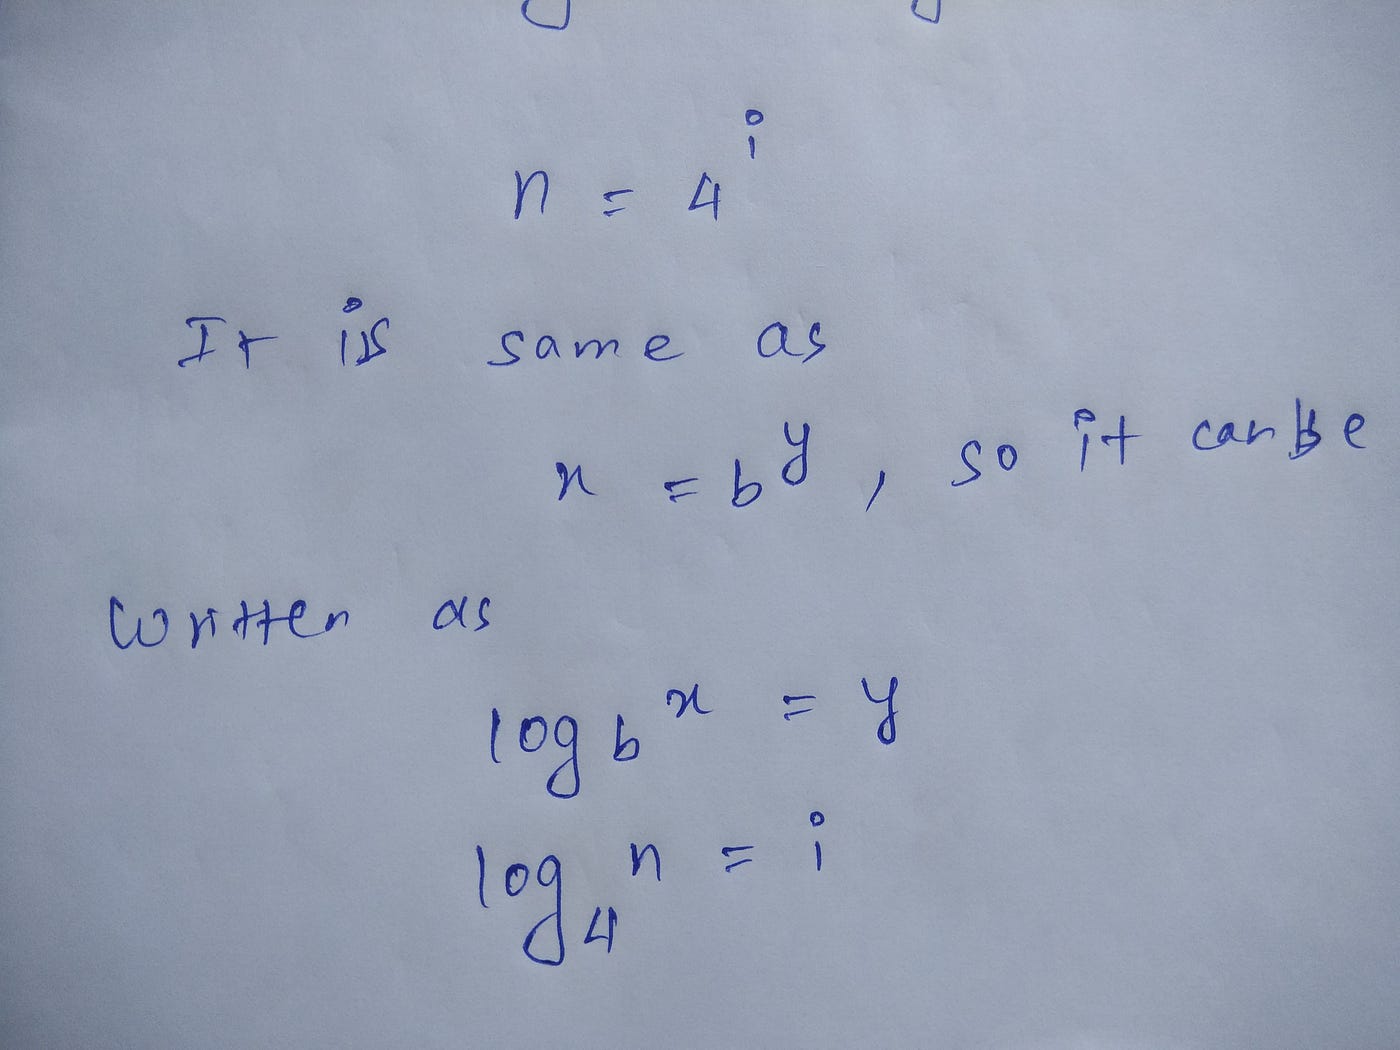 n = 4^i
It is same as
x = b^y, so it can be
written as
log b^x = y
log₄ n = i